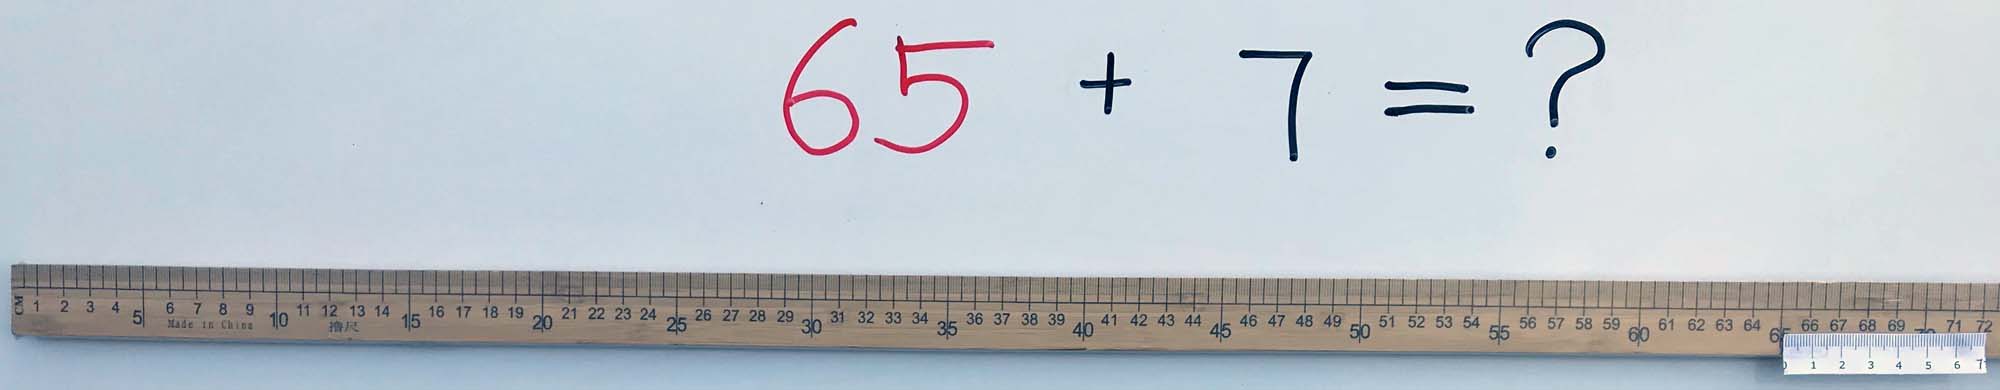 65 + 7 = ?
CM 1 2 3 4 5 6 7 8 9 10 11 12 13 14 15 16 17 18 19 20 21 22 23 24 25 26 27 28 29 30 31 32 33 34 35 36 37 38 39 40 41 42 43 44 45 46 47 48 49 50 51 52 53 54 55 56 57 58 59 60 61 62 63 64 65 66 67 68 69 70 71 72
Made in China
0 1 2 3 4 5 6 7